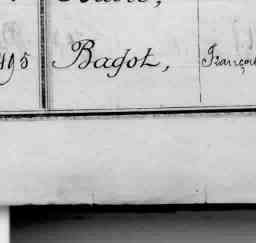 495 Bagot, François